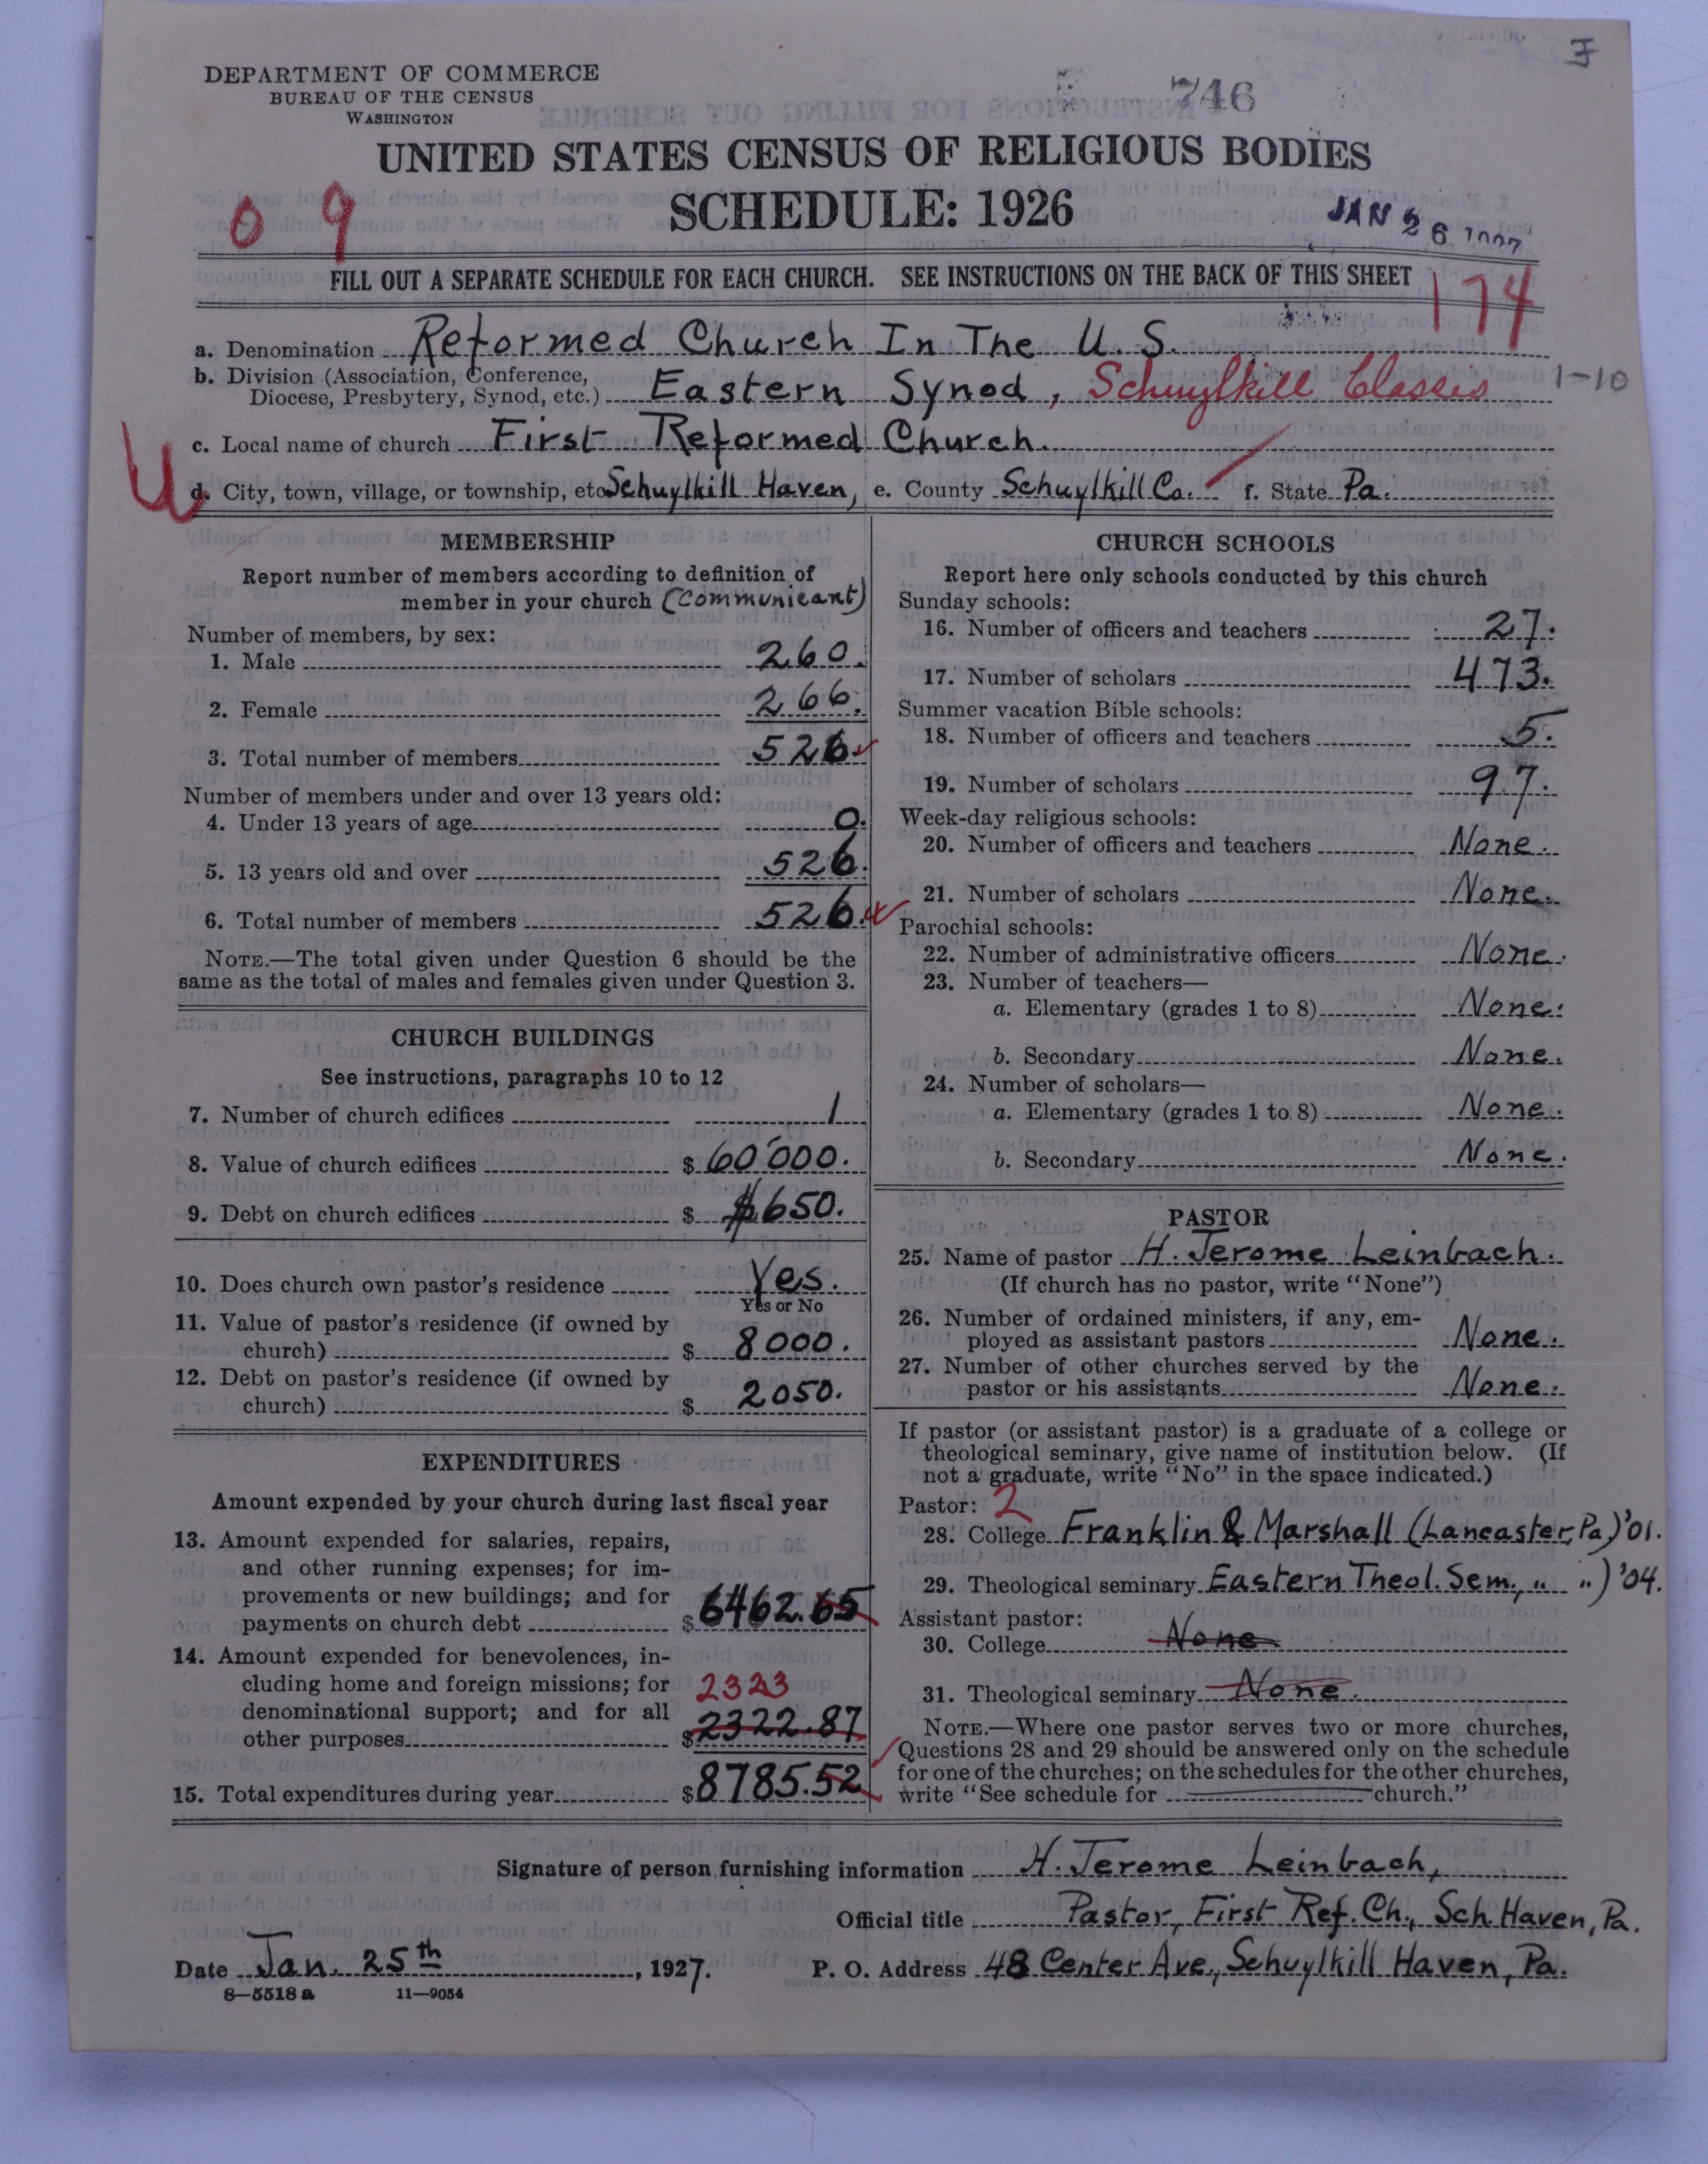 DEPARTMENT OF COMMERCE
BUREAU OF THE CENSUS
WASHINGTON
746
UNITED STATES CENSUS OF RELIGIOUS BODIES
SCHEDULE: 1926
0 9
JAN 26 1927
FILL OUT A SEPARATE SCHEDULE FOR EACH CHURCH. SEE INSTRUCTIONS ON THE BACK OF THIS SHEET
174
a. Denomination Reformed Church In The U. S.
b. Division (Association, Conference, Diocese, Presbytery, Synod, etc.) Eastern Synod, Schuylkill Classes 1-10
c. Local name of church First Reformed Church.
d. City, town, village, or township, etc. Schuylkill Haven, e. County Schuylkill Co. f. State Pa.
MEMBERSHIP
Report number of members according to definition of
member in your church (Communicant)
Number of members, by sex:
1. Male 260.
2. Female 266.
3. Total number of members 526.
Number of members under and over 13 years old:
4. Under 13 years of age 0.
5. 13 years old and over 526.
6. Total number of members 526.
NOTE.—The total given under Question 6 should be the
same as the total of males and females given under Question 3.
CHURCH BUILDINGS
See instructions, paragraphs 10 to 12
7. Number of church edifices 1
8. Value of church edifices $ 60'000.
9. Debt on church edifices $ $650.
10. Does church own pastor's residence Yes.
Yes or No
11. Value of pastor's residence (if owned by
church) $ 8000.
12. Debt on pastor's residence (if owned by
church) $ 2050.
EXPENDITURES
Amount expended by your church during last fiscal year
13. Amount expended for salaries, repairs,
and other running expenses; for im-
provements or new buildings; and for
payments on church debt $ 6462.65
14. Amount expended for benevolences, in-
cluding home and foreign missions; for 2323
denominational support; and for all
other purposes $ 2322.87
15. Total expenditures during year $ 8785.52
CHURCH SCHOOLS
Report here only schools conducted by this church
Sunday schools:
16. Number of officers and teachers 27.
17. Number of scholars 473.
Summer vacation Bible schools:
18. Number of officers and teachers 5.
19. Number of scholars 97.
Week-day religious schools:
20. Number of officers and teachers None.
21. Number of scholars None.
Parochial schools:
22. Number of administrative officers None.
23. Number of teachers—
a. Elementary (grades 1 to 8) None.
b. Secondary None.
24. Number of scholars—
a. Elementary (grades 1 to 8) None.
b. Secondary None.
PASTOR
25. Name of pastor H. Jerome Leinbach.
(If church has no pastor, write "None")
26. Number of ordained ministers, if any, em-
ployed as assistant pastors None.
27. Number of other churches served by the
pastor or his assistants None.
If pastor (or assistant pastor) is a graduate of a college or
theological seminary, give name of institution below. (If
not a graduate, write "No" in the space indicated.)
Pastor: 2
28. College Franklin & Marshall (Lancaster, Pa.) '01.
29. Theological seminary Eastern Theol. Sem., " ") '04.
Assistant pastor:
30. College None
31. Theological seminary None.
NOTE.—Where one pastor serves two or more churches,
Questions 28 and 29 should be answered only on the schedule
for one of the churches; on the schedules for the other churches,
write "See schedule for church."
Signature of person furnishing information H. Jerome Leinbach,
Official title Pastor, First Ref. Ch., Sch. Haven, Pa.
Date Jan. 25th, 1927. P. O. Address 48 Center Ave., Schuylkill Haven, Pa.
8—5518 a 11—9054